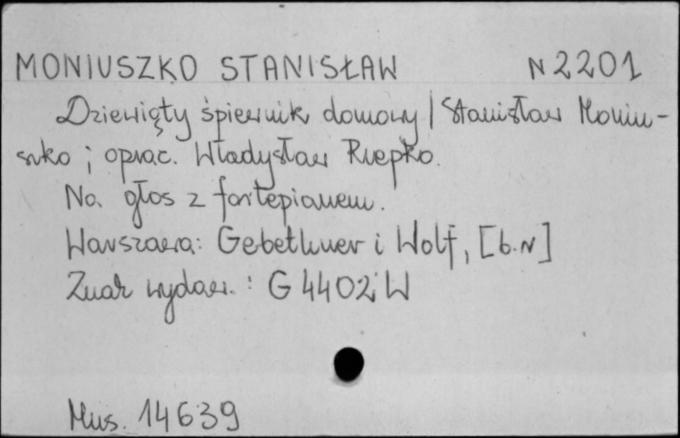 MONIUSZKO STANISŁAW N 2201
Dziewiąty śpiewnik domowy / Stanisław Moniu-
szko ; oprac. Władysław Rzepko.
Na głos z fortepianem.
Warszawa : Gebethner i Wolf, [b.r]
Znak wydaw. : G 4402 W
Mus. 14639